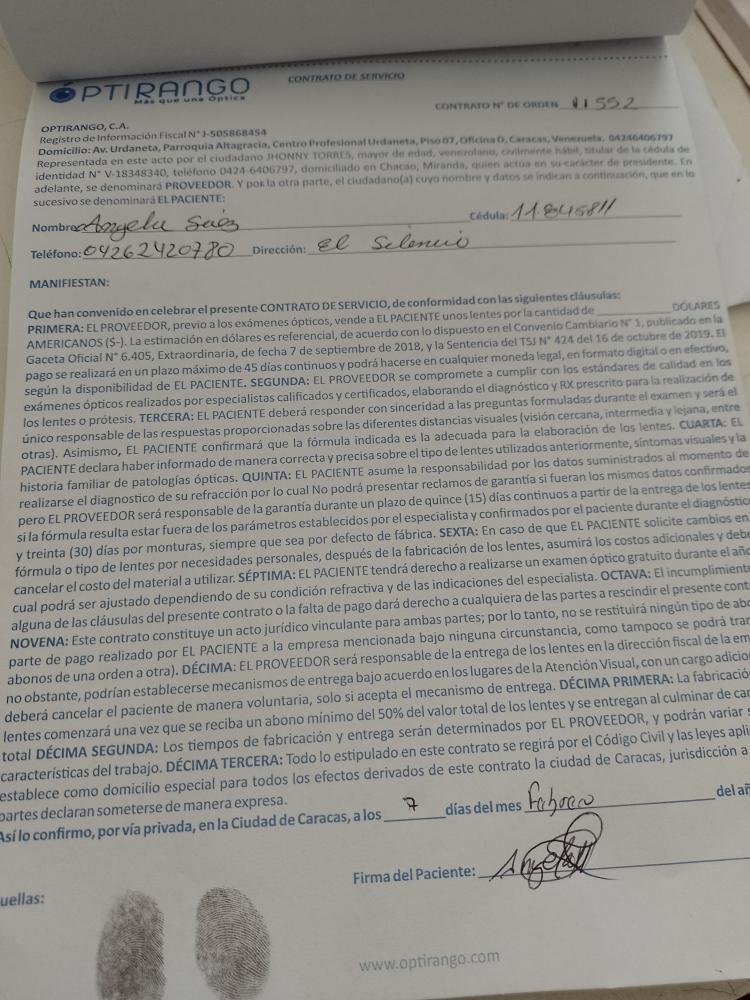 OPTIRANGO
Más que una Óptica
CONTRATO DE SERVICIO
CONTRATO N° DE ORDEN 11552
OPTIRANGO, C.A.
Registro de Información Fiscal N° J-505868454
Domicilio: Av. Urdaneta, Parroquia Altagracia, Centro Profesional Urdaneta, Piso 07, Oficina D, Caracas, Venezuela. 04246406797
Representada en este acto por el ciudadano JHONNY TORRES, mayor de edad, venezolano, civilmente hábil, titular de la cédula de
identidad N° V-18348340, teléfono 0424-6406797, domiciliado en Chacao, Miranda, quien actúa en su carácter de presidente. En
adelante, se denominará PROVEEDOR. Y por la otra parte, el ciudadano(a) cuyo nombre y datos se indican a continuación, que en lo
sucesivo se denominará EL PACIENTE:
Nombre: Angela Cédula: 11.845811
Teléfono: 04262420780 Dirección: El Silencio
MANIFIESTAN:
Que han convenido en celebrar el presente CONTRATO DE SERVICIO, de conformidad con las siguientes cláusulas:
PRIMERA: EL PROVEEDOR, previo a los exámenes ópticos, vende a EL PACIENTE unos lentes por la cantidad de ________ DÓLARES
AMERICANOS ($-). La estimación en dólares es referencial, de acuerdo con lo dispuesto en el Convenio Cambiario N° 1, publicado en la
Gaceta Oficial N° 6.405, Extraordinaria, de fecha 7 de septiembre de 2018, y la Sentencia del TSJ N° 424 del 16 de octubre de 2019. El
pago se realizará en un plazo máximo de 45 días continuos y podrá hacerse en cualquier moneda legal, en formato digital o en efectivo,
según la disponibilidad de EL PACIENTE. SEGUNDA: EL PROVEEDOR se compromete a cumplir con los estándares de calidad en los
exámenes ópticos realizados por especialistas calificados y certificados, elaborando el diagnóstico y RX prescrito para la realización de
los lentes o prótesis. TERCERA: EL PACIENTE deberá responder con sinceridad a las preguntas formuladas durante el examen y será el
único responsable de las respuestas proporcionadas sobre las diferentes distancias visuales (visión cercana, intermedia y lejana, entre
otras). Asimismo, EL PACIENTE confirmará que la fórmula indicada es la adecuada para la elaboración de los lentes. CUARTA: EL
PACIENTE declara haber informado de manera correcta y precisa sobre el tipo de lentes utilizados anteriormente, síntomas visuales y la
historia familiar de patologías ópticas. QUINTA: EL PACIENTE asume la responsabilidad por los datos suministrados al momento de
realizarse el diagnostico de su refracción por lo cual No podrá presentar reclamos de garantía si fueran los mismos datos confirmados
pero EL PROVEEDOR será responsable de la garantía durante un plazo de quince (15) días continuos a partir de la entrega de los lentes
si la fórmula resulta estar fuera de los parámetros establecidos por el especialista y confirmados por el paciente durante el diagnóstico
y treinta (30) días por monturas, siempre que sea por defecto de fábrica. SEXTA: En caso de que EL PACIENTE solicite cambios en
fórmula o tipo de lentes por necesidades personales, después de la fabricación de los lentes, asumirá los costos adicionales y debe
cancelar el costo del material a utilizar. SÉPTIMA: EL PACIENTE tendrá derecho a realizarse un examen óptico gratuito durante el año
cual podrá ser ajustado dependiendo de su condición refractiva y de las indicaciones del especialista. OCTAVA: El incumplimient
alguna de las cláusulas del presente contrato o la falta de pago dará derecho a cualquiera de las partes a rescindir el presente cont
NOVENA: Este contrato constituye un acto jurídico vinculante para ambas partes; por lo tanto, no se restituirá ningún tipo de abo
parte de pago realizado por EL PACIENTE a la empresa mencionada bajo ninguna circunstancia, como tampoco se podrá tran
abonos de una orden a otra). DÉCIMA: EL PROVEEDOR será responsable de la entrega de los lentes en la dirección fiscal de la em
no obstante, podrían establecerse mecanismos de entrega bajo acuerdo en los lugares de la Atención Visual, con un cargo adicio
deberá cancelar el paciente de manera voluntaria, solo si acepta el mecanismo de entrega. DÉCIMA PRIMERA: La fabricació
lentes comenzará una vez que se reciba un abono mínimo del 50% del valor total de los lentes y se entregan al culminar de can
total DÉCIMA SEGUNDA: Los tiempos de fabricación y entrega serán determinados por EL PROVEEDOR, y podrán variar s
características del trabajo. DÉCIMA TERCERA: Todo lo estipulado en este contrato se regirá por el Código Civil y las leyes apli
establece como domicilio especial para todos los efectos derivados de este contrato la ciudad de Caracas, jurisdicción a
partes declaran someterse de manera expresa.
Así lo confirmo, por vía privada, en la Ciudad de Caracas, a los 7 días del mes Febrero del añ
Firma del Paciente:
uellas:
www.optirango.com